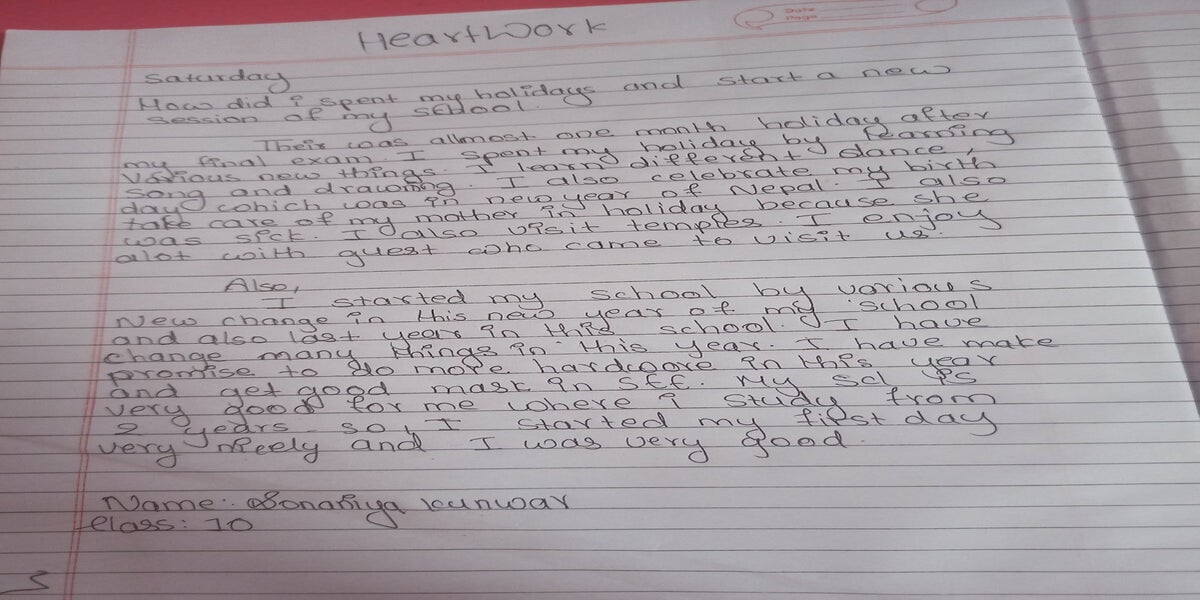 Date
Page
HeartWork
Saturday
How did i spent my holidays and start a new
session of my school.
Their was allmost one month holiday after
my final exam. I spent my holiday by learning
various new things. I learn different dance,
song and drawing. I also celebrate my birth
day which was in new year of Nepal. I also
take care of my mother in holiday because she
was sick. I also visit temples. I enjoy
alot with guest who came to visit us.
Also,
I started my school by various
New change in this new year of my school
and also last year in this school. I have
change many things in this year. I have make
promise to do more hardcore in this year
and get good mask in SEE. My scl is
very good for me where i study from
2 years. so, I started my first day
very nicely and I was very good.
Name: Sonaniya kunwar
Class: 10